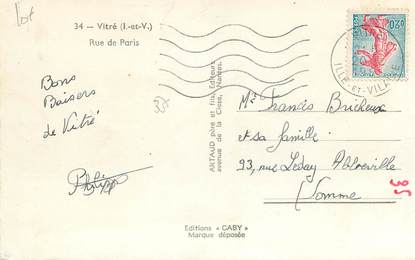 lot
34 — Vitré (I.-et-V.)
Rue de Paris
Bons
Baisers
de Vitré
Philippe
ARTAUD père et fils, Editeurs
avenue de la Close, Nantes.
Mr Francis Bricheux
et sa famille
93, rue Leday Abbeville
Somme
Editions « GABY »
Marque déposée
0,20
ILLE-ET-VILAINE
35
35